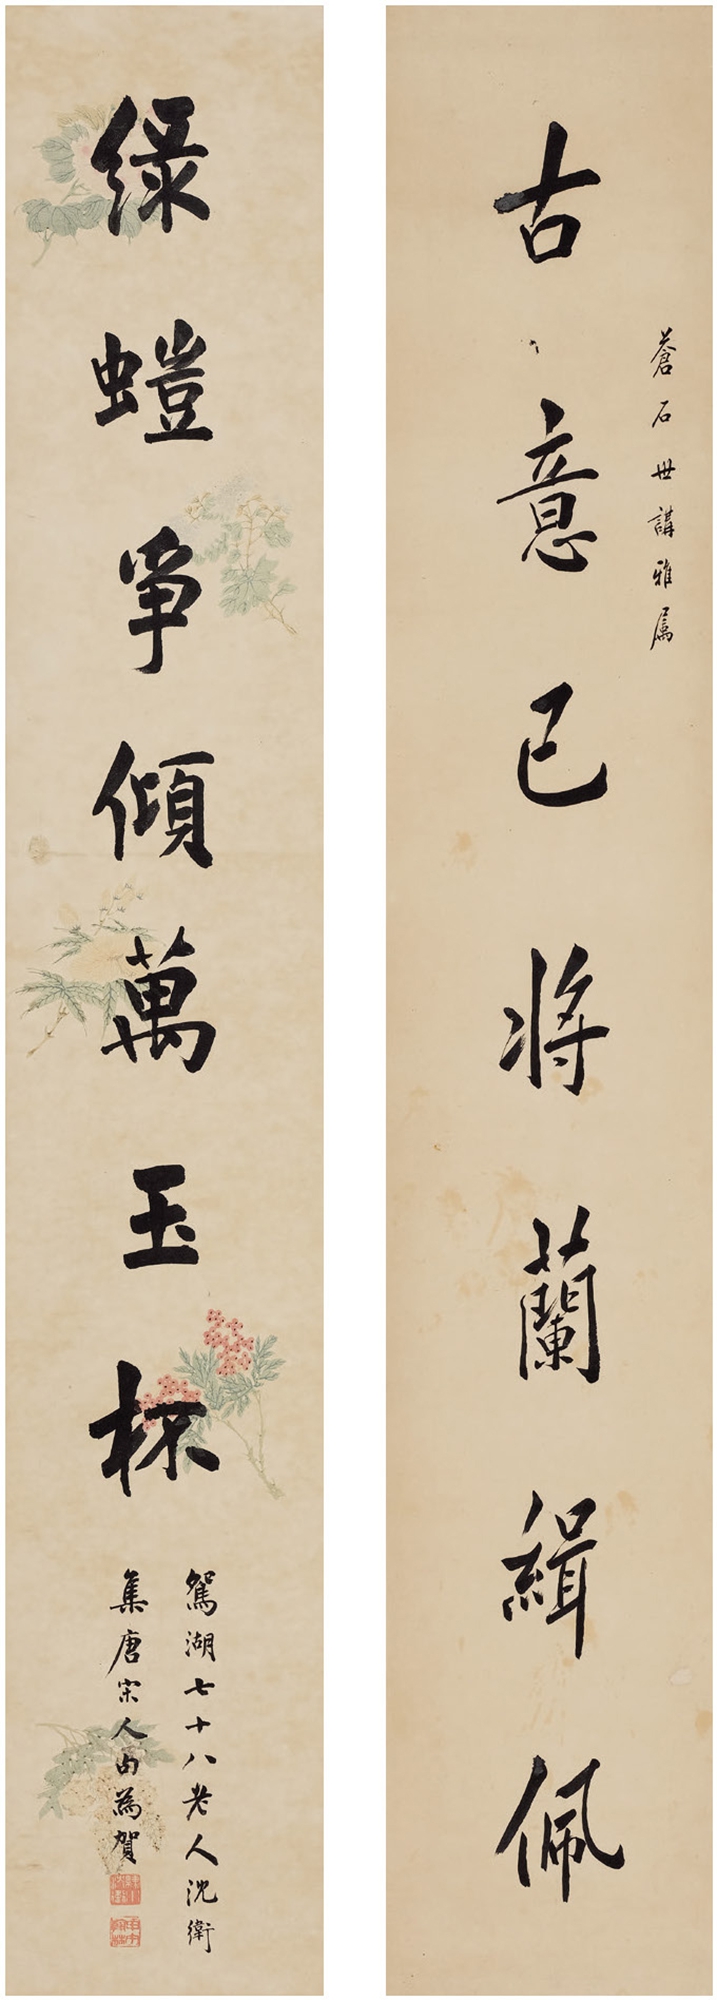 蒼石世講雅属
古意已将蘭緝佩
綠螘爭傾萬玉杯
鴛湖七十八老人沈衛
集唐宋人句為賀